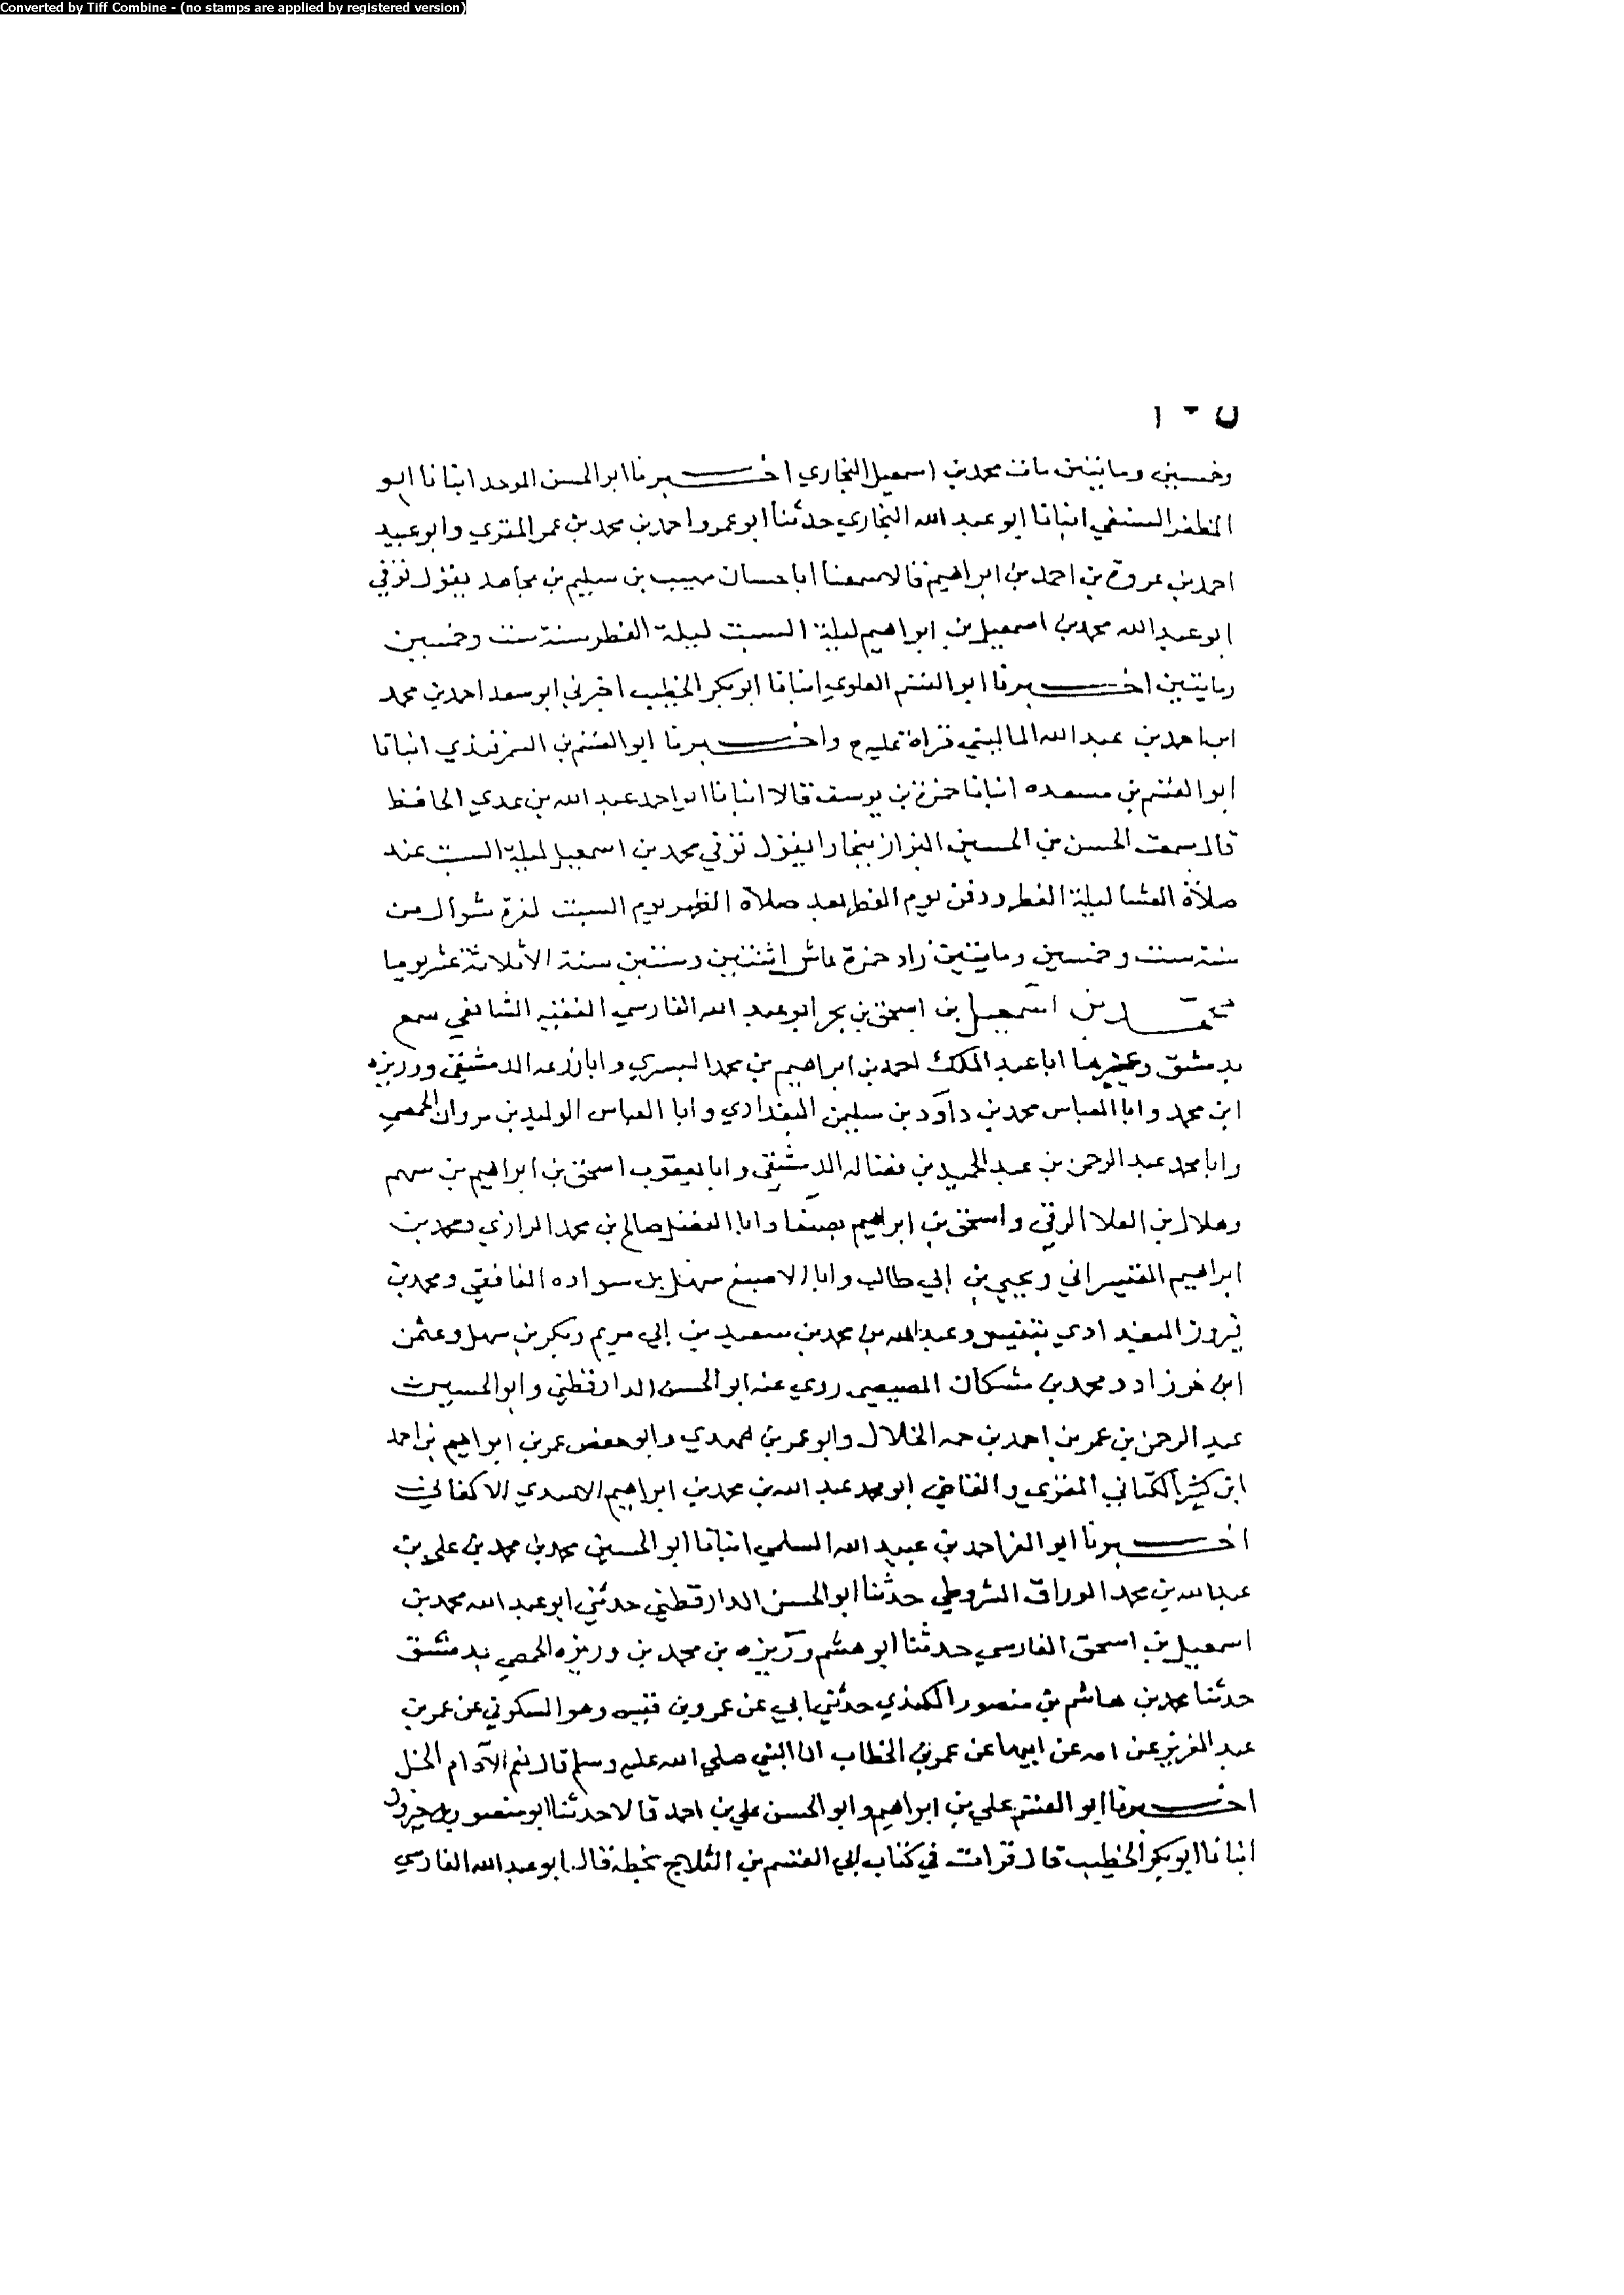 Converted by Tiff Combine - (no stamps are applied by registered version)
وخمسين ومايتين مات محمد بن اسمعيل البخاري اخبرنا ابو الحسن الموحد انبانا ابو
المظفر النسفي انبانا ابو عبد الله البخاري حدثنا ابو عمرو احمد بن محمد بن عمر المقري وابو عبيد
احمد بن عروة بن احمد بن ابراهيم قالا سمعنا ابا حسان مهيب بن سليم بن مجاهد يقول توفي
ابو عبد الله محمد بن اسمعيل بن ابراهيم ليلة السبت ليلة الفطر سنة ست وخمسين
ومايتين اخبرنا ابو القسم العلوي انبانا ابو بكر الخطيب اخبرني ابو سعد احمد بن محمد
ابن احمد بن عبد الله الماليني قراة عليه ح واخبرنا ابو القسم بن السمرقندي انبانا
ابو القسم بن مسعده انبانا حمزة بن يوسف قالا انبانا ابو احمد عبد الله بن عدي الحافظ
قال سمعت الحسن بن الحسين البزاز ببخارا يقول توفي محمد بن اسمعيل ليلة السبت عند
صلاة العشا ليلة الفطر ودفن يوم الفطر بعد صلاة الظهر يوم السبت لغرة شوال من
سنة ست وخمسين ومايتين زاد حمزة عاش اثنتين وستين سنة الا ثلاثة عشر يوما
محمد بن اسمعيل بن اسحق بن بحر ابو عبد الله الفارسي الفقيه الشافعي سمع
بدمشق وغيرها ابا عبد الملك احمد بن ابراهيم بن محمد البسري وابا زرعه الدمشقي ووريزه
ابن محمد وابا العباس محمد بن داود بن سليمن البغدادي وابا العباس الوليد بن مروان الحمصي
وابا محمد عبد الرحمن بن عبد الحميد بن فضاله الدمشقي وابا يعقوب اسحق بن ابراهيم بن سهم
وهلال بن العلا الرقي واسحق بن ابراهيم بصنعا وابا الفضل صالح بن محمد الرازي ومحمد بن
ابراهيم القيسراني ويحيى بن ابي طالب وابا الاصبغ سهل بن سواده الغافقي ومحمد بن
فيروز البغدادي بتنيس وعبد الله بن محمد بن سعيد بن ابي مريم وبكر بن سهل وعثمن
ابن خرزاد ومحمد بن مشكان المصيصي روي عنه ابو الحسن الدارقطني وابو الحسين
عبد الرحمن بن عمر بن احمد بن حمه الخلال وابو عمر بن مهدي وابو حفص عمر بن ابراهيم بن احمد
ابن كثير الكتاني المقري والقاضي ابو محمد عبد الله بن محمد بن ابراهيم الاسدي الاكفاني
اخبرنا ابو العز احمد بن عبيد الله السلمي انبانا ابو الحسين محمد بن محمد بن علي بن
عبد الله بن محمد الوراق الشروطي حدثنا ابو الحسن الدارقطني حدثني ابو عبد الله محمد بن
اسمعيل بن اسحق الفارسي حدثنا ابو هشم وريزه بن محمد بن وريزه الحمصي بدمشق
حدثنا محمد بن هاشم بن منصور الكندي حدثني ابي عن عمرو بن قيس وهو السكوني عن عمر بن
عبد العزيز عن امه عن ابيها عن عمر بن الخطاب ان النبي صلى الله عليه وسلم قال نعم الادام الخل
اخبرنا ابو القسم علي بن ابراهيم وابو الحسن علي بن احمد قالا حدثنا ابو منصور بن خيرون
انبانا ابو بكر الخطيب قال قرات في كتاب ابي القسم بن الثلاج بخطه قال ابو عبد الله الفارسي